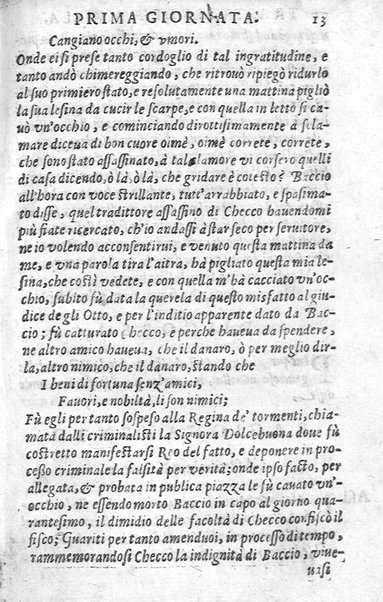 PRIMA GIORNATA. 13
Cangiano occhi, & vmori.
Onde ei si prese tanto cordoglio di tal ingratitudine, e
tanto andò chimereggiando, che ritrouò ripiegò ridurlo
al suo primiero stato, e resolutamente una mattina pigliò
la sua lesina da cucir le scarpe, e con quella in letto si ca-
uò vn'occhio, e cominciando dirottissimamente à scla-
mare diceua di bon cuore oimè, oimè correte, correte,
che sono stato assassinato, à tal amore vi corsero quelli
di casa dicendo, ò là, ò là, che gridare è cotesto? Baccio
all'hora con voce strillante, tutt'arrabbiato, e spasima-
to disse, quel tradittore assassino di Checco hauendomi
più fiate ricercato, ch'io andassi à star seco per seruitore,
ne io volendo acconsentirui, e venuto questa mattina da
me, e vna parola tira l'altra, hà pigliato questa mia le-
sina, che costì vedete, e con quella m'hà cacciato vn'oc-
chio, subito fù data la querela di questo misfatto al giu-
dice de gli Otto, e per l'inditio apparente dato da Bac-
cio; fù catturato Checco, e perche haueua da spendere,
ne altro amico haueua, che il danaro, ò per meglio dir-
la, altro nimico, che il danaro, stando che
I beni di fortuna senz'amici,
Fauori, e nobiltà, li son nimici;
Fù egli per tanto sospeso alla Regina de' tormenti, chia-
mata dalli criminalisti la Signora Dolcebuona doue fù
costretto manifestarsi Reo del fatto, e deponere in pro-
cesso criminale la falsità per verità; onde ipso facto, per
allegata, & probata in publica piazza le fù cauato vn'-
occhio, ne essendo morto Baccio in capo al giorno qua-
rantesimo, il dimidio delle facoltà di Checco confiscò il
fisco; Guariti per tanto amenduoi, in processo di tempo,
rammemorandosi Checco la indignità di Baccio, viue-
uasi